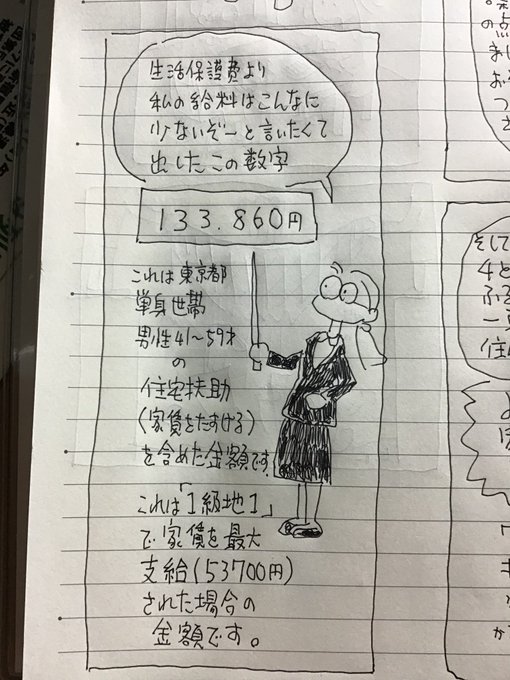 生活保護費より
私の給料はこんなに
少ないぞーと言いたくて
出したこの数字
133.860円
これは東京都
単身世帯
男性41〜59才
の
住宅扶助
(家賃をたすける)
を含めた金額です。
これは「1級地1」
で家賃を最大
支給(53700円)
された場合の
金額です。
の点
そして
4と
ふる